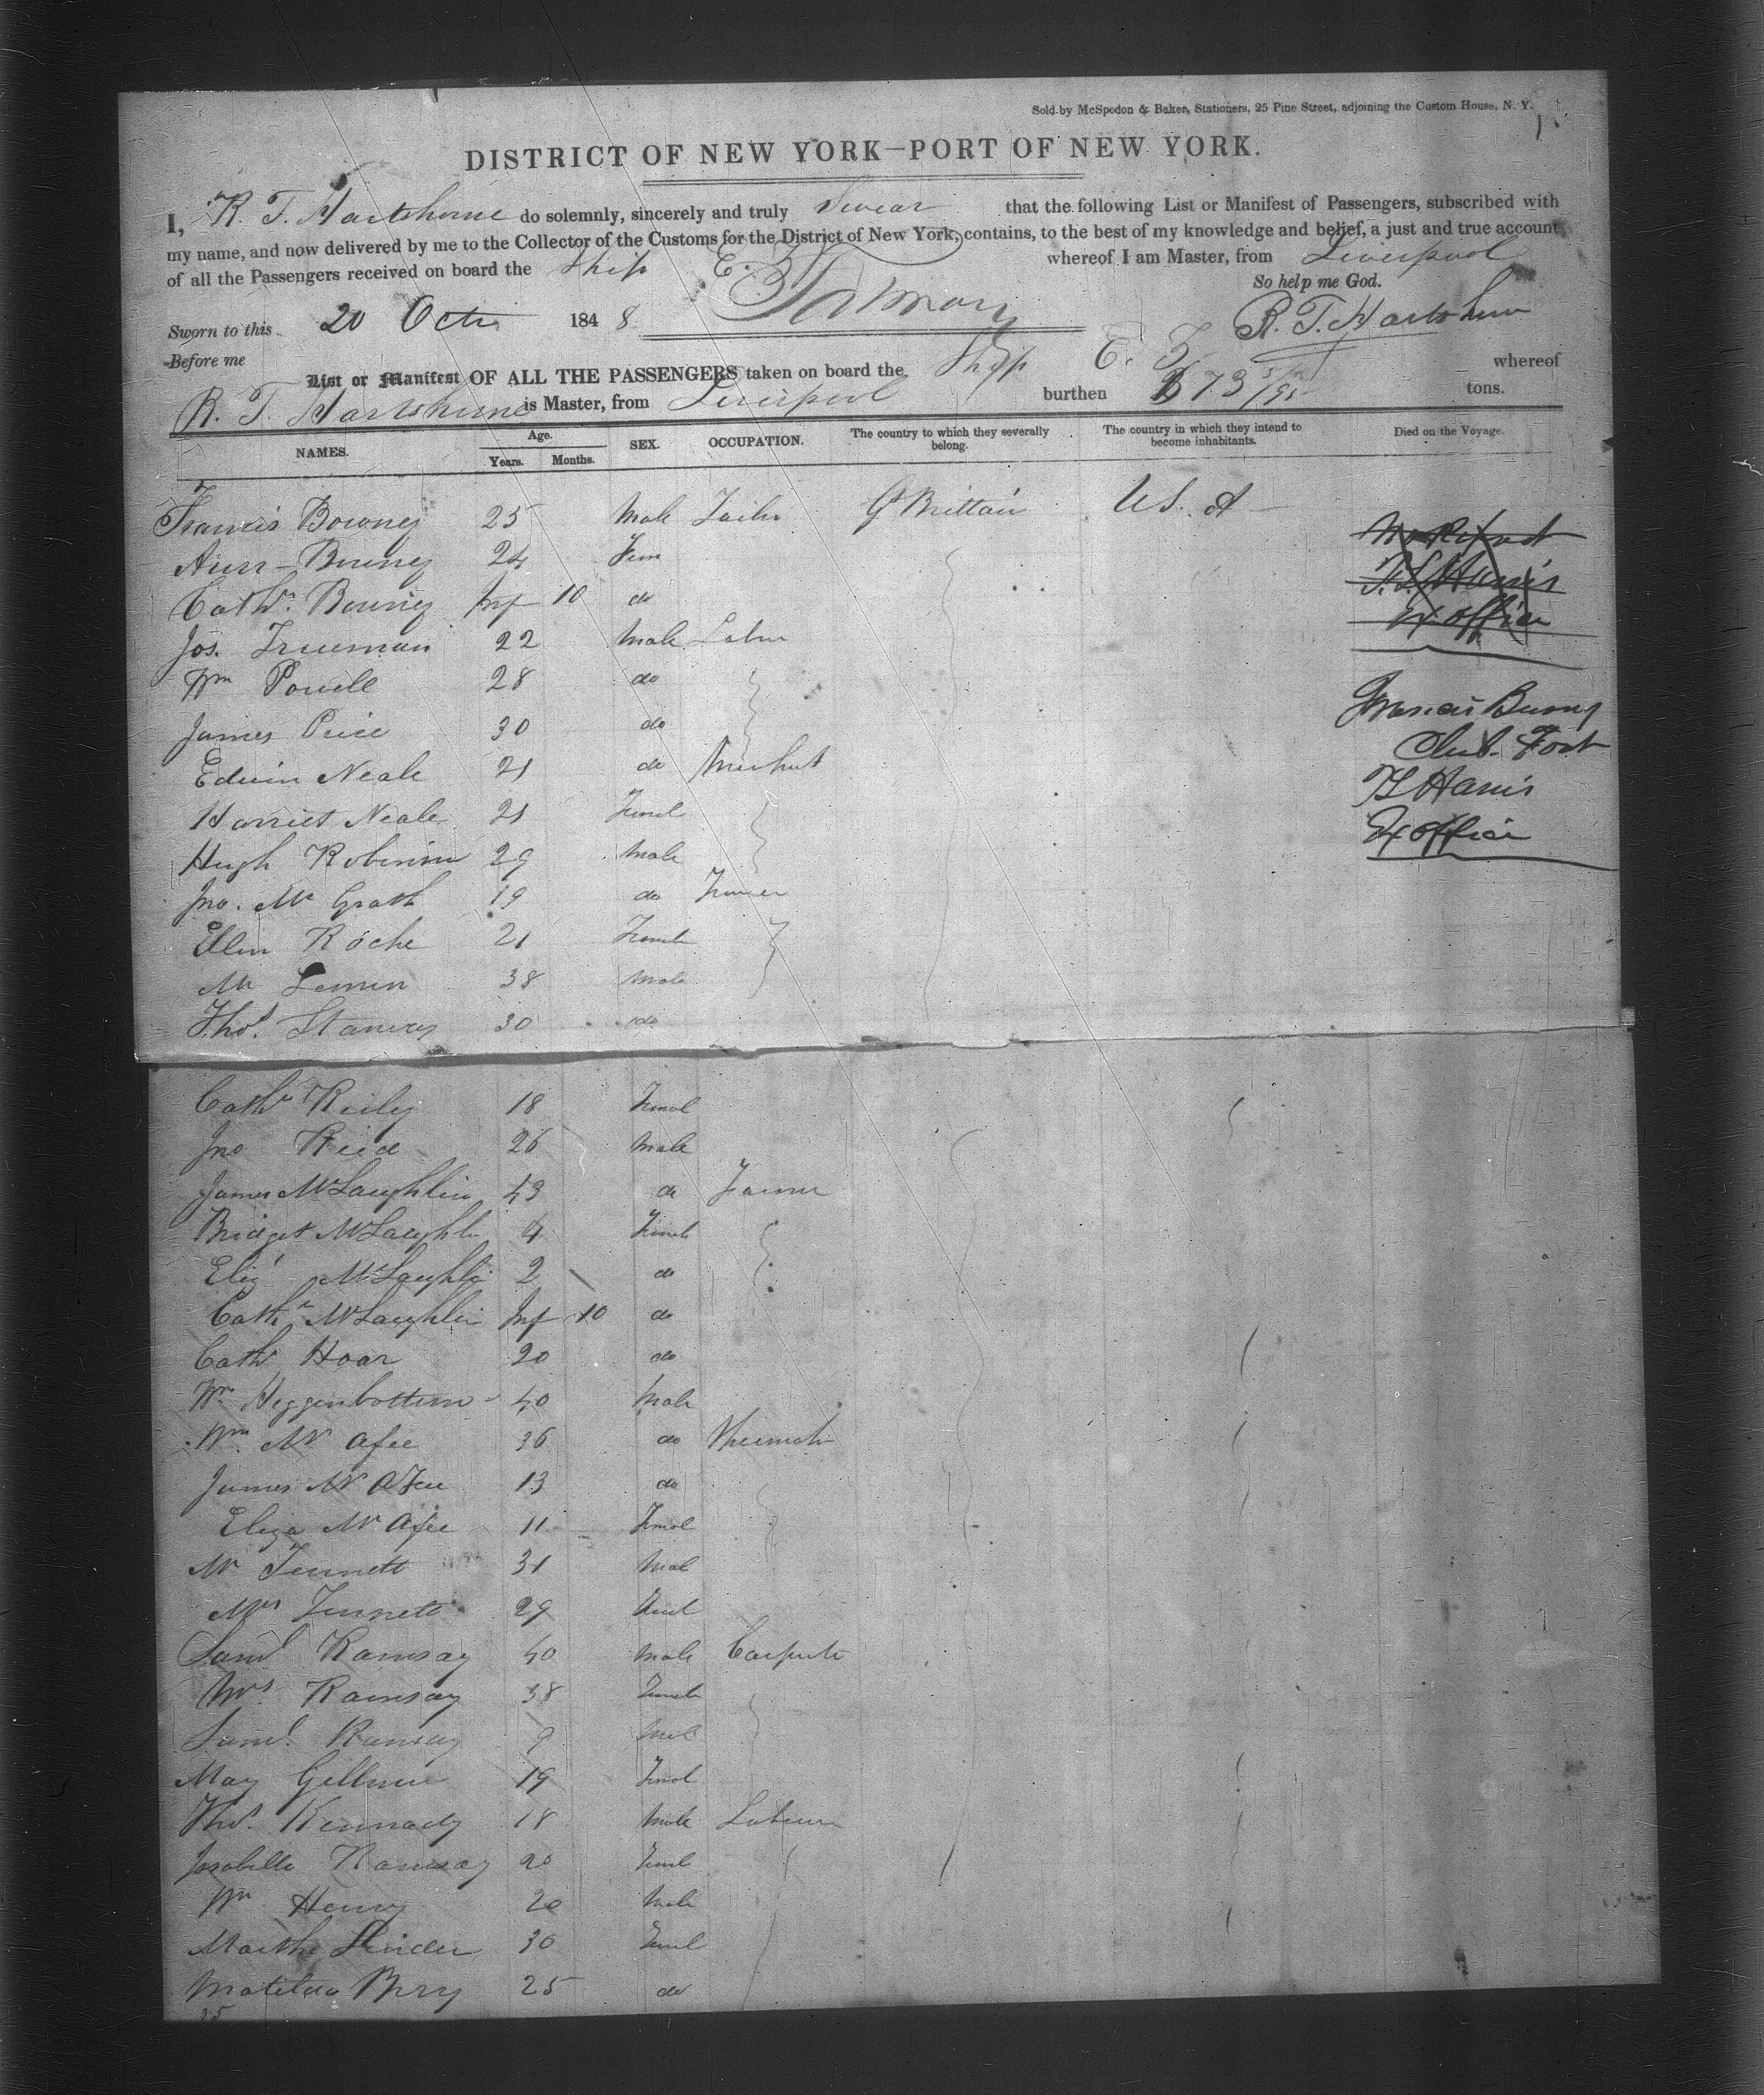 Sold by McSpedon & Baker, Stationers, 25 Pine Street, adjoining the Custom House, N. Y.
DISTRICT OF NEW YORK—PORT OF NEW YORK.
I, R. T. Hartshorne do solemnly, sincerely and truly Swear that the following List or Manifest of Passengers, subscribed with
my name, and now delivered by me to the Collector of the Customs for the District of New York, contains, to the best of my knowledge and belief, a just and true account
of all the Passengers received on board the Ship E. Z. whereof I am Master, from Liverpool
So help me God.
Sworn to this 20 Oct 1848 R. T. Hartshorne
Before me
List or Manifest OF ALL THE PASSENGERS taken on board the Ship E. Z. whereof
R. T. Hartshorne is Master, from Liverpool burthen 673 /95 tons.
NAMES. Age. Years. Months. SEX. OCCUPATION. The country to which they severally belong. The country in which they intend to become inhabitants. Died on the Voyage.
Francis Bowney 25 Male Tailor Gt Brittain U.S. A
Bowney 24 Fem
Cathe. Bowney Inf 10 do
Jos. Trueman 22 Male Labr
Wm Powell 28 do
James Price 30 do
Edwin Neale 21 do
Harriet Neale 21 Femal
Hugh Robinson 29 Male
Jno. Mc Grath 19 do Farmer
Ellen Roche 21 Female
Mr 38 Male
Thos. 30 do
Francis
Club Foot
Harris
Cathe Reily 18 Femal
Jno Reid 26 Male
James McLaughlin 43 do Farmer
Bridget McLaughln 4 Female
Eliz McLaughlin 2 do
Cathe McLaughlin Inf 10 do
Cathe Hoar 20 do
Wm Heggenbottem 40 Male
Wm Mc Afee 36 do
James Mc Afee 13 do
Eliza Mc Afee 11 Femal
Mr Tennett 31 Mal
Mrs Tennett 29 Feml
Saml Ramsay 40 Male Carpente
Mrs Ramsay 38 Female
Saml. Ramsay 9 Male
May 19 Femal
Thos. Kennady 18 Male Labourer
Isabella Ramsay 20 Femal
Wm Henry 20 Male
Martha 30 Femal
Matilda Bery 25 do
25